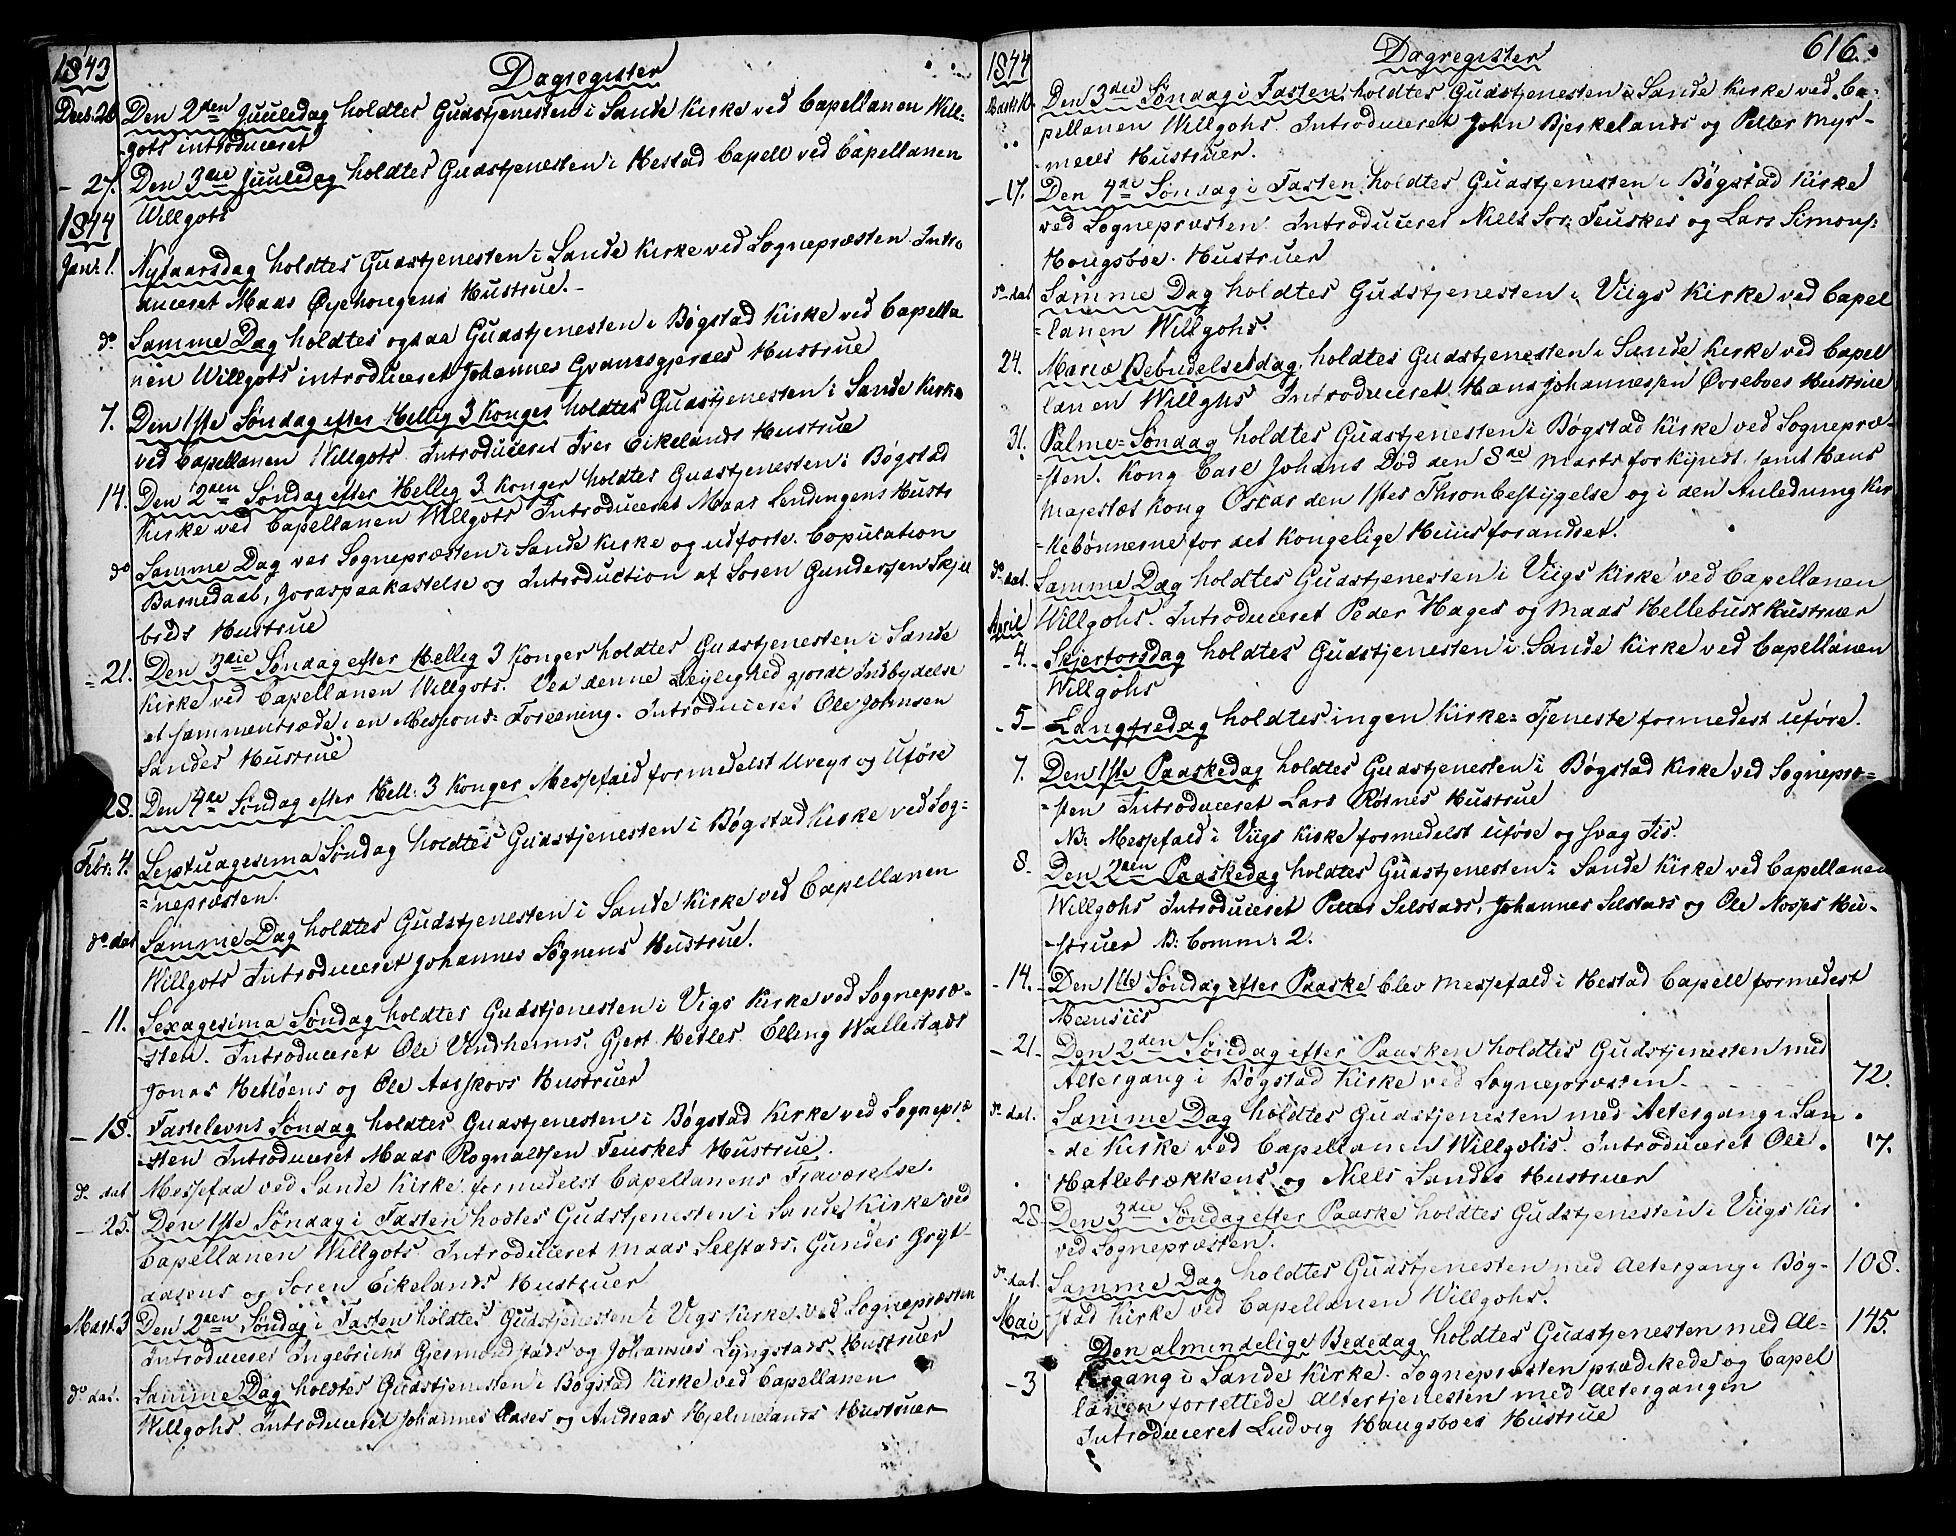 1843
Dagregister
Decb: 26 Den 2den Juuledag holdtes Gudstjenesten i Sande Kirke ved Capellanen Will-
gots introduceret
- 27. Den 3die Juuledag holdtes Gudstjenesten i Hestad Capell ved Capellanen
Willgots
1844
Janr 1. Nytaarsdag holdtes Gudstjenesten i Sande Kirke ved Sognepræsten Intro
duceret Maas Øyehougens Hustrue.-
do Samme Dag holdtes ogsaa Gudstjenesten i Bøgstad Kirke ved Capella
nen Willgots introduceret Johannes Grønesgjerdes Hustrue
7. Den 1ste Søndag efter Hellig 3 Konger holdtes Gudstjenesten i Sande Kirke
ved Capellanen Willgots. Introduceret Iver Eikelands Hustrue
14. Den 2den Søndag efter Hellig 3 Konger holdtes Gudstjenesten i Bøgstad
Kirke ved Capellanen Willgots Introduceret Maas Lendingens Hustr
do Samme Dag var Sognepræsten i Sande Kirke og udførte Copulation
Barnedaab, Jordspaakastelse og Introduction af Søren Gundersen Skjel
breds Hustrue
- 21. Den 3die Søndag efter Hellig 3 Konger holdtes Gudstjenesten i Sande
Kirke ved Capellanen Willgots. Ved denne Leylighed gjordt Indbydelse
at sammentræde i en Missions-Forening. Introduceret Ole Johnsen
Sandes Hustrue
28. Den 4de Søndag efter Hell: 3 Konger Messefald formedelst Uveyr og Uføre
Febr: 4. Septuagesima Søndag holdtes Gudstjenesten i Bøgstad Kirke ved Sog-
=nepræsten.
do dat Samme Dag holdtes Gudstjenesten i Sande Kirke ved Capellanen
Willgots Introduceret Johannes Søgnens Hustrue.
- 11. Sexagesima Søndag holdtes Gudstjenesten i Vigs Kirke ved Sognepræ-
sten. Introduceret Ole Vindheims, Gjert Hetles Elling Wallestads
Jonas Hetløens og Ole Aasskovs Hustruer
- 18. Fastelavns Søndag holdtes Gudstjenesten i Bøgstad Kirke ved Sognepræ
-sten Introduceret Maas Rognaldsen Feuskes Hustrue.
do dat Messefaa ved Sande Kirke formedelst Capellanens Fraværelse.
- 25. Den 1ste Søndag i Fasten holdtes Gudstjenesten i Sande Kirke ved
Capellanen Willgots. Introduceret Maas Selstads, Gunder Gryt-
aasens og Søren Eikelands Hustruer
Mart. 3 Den 2den Søndag i Fasten holdtes Gudstjenesten i Vigs Kirke ved Sognepræsten
Introduceret Ingebricht Gjermondstads og Johannes Lyngstads Hustruer
do dat. Samme Dag holdtes Gudstjenesten i Bøgstad Kirke ved Capellanen
Willgohs. Introduceret Johannes Aases og Andreas Hjelmelands Hustruer
1844
Dagregister
616.
Marts 10. Den 3die Søndag i Fasten holdtes Gudstjenesten i Sande Kirke ved Ca-
pellanen Willgohs. Introduceret John Bjerkelands og Petter Myr-
-meels Hustruer.
- 17. Den 4de Søndag i Fasten holdtes Gudstjenesten i Bøgstad Kirke
ved Sognepræsten. Introduceret Niels Sør: Feuskes og Lars Simons:
Hougsboe Hustruer
do dat Samme Dag holdtes Gudstjenesten i Viigs Kirke ved Capel
=lanen Willgohs.
24. Mariæ Bebudelsesdag holdtes Gudstjenesten i Sande Kirke ved Capel
lanen Willghs Introduceret Hans Johannessen Øvreboes Hustrue
31. Palme-Søndag holdtes Gudstjenesten i Bøgstad Kirke ved Sognepræ-
=sten. Kong Carl Johans Død den 8de Marts forkyndt samt Hans
Majestæt Kong Oscar den 1stes Thronbestigelse og i den Anledning Kir
-kebønnerne for det Kongelige Huus forandret.
do dat. Samme Dag holdtes Gudstjenesten i Viigs Kirke ved Capellanen
Willgohs. Introduceret Peder Hages og Maas Hellebust Hustruer
April
- 4. - Skjertorsdag holdtes Gudstjenesten i Sande Kirke ved Capellanen
Willgohs
- 5 - Langfredag holdtes ingen Kirke-Tjeneste formedest Uføre.
7. Den 1ste Paaskedag holdtes Gudstjenesten i Bøgstad Kirke ved Sognepræ-
-sten Introduceret Lars Røsnes Hustrue
NB: Messefald i Viigs Kirke formedelst Uføre og svag Iis.
8. Den 2den Paaskedag holdtes Gudstjenesten i Sande Kirke ved Capellanen
Willgohs Introduceret Petter Selstads, Johannes Selstads og Ole Nosses Hu-
-struer NB: Comm: 2.
- 14. - Den 1ste Søndag efter Paaske blev Messefald i Hestad Capell formedest
Meensiis
- 21 - Den 2den Søndag efter Paasken holdtes Gudstjenesten med
Altergang i Bøgstad Kirke ved Sognepræsten. 72.
do dat. Samme Dag holdtes Gudstjenesten med Altergang i San
-de Kirke ved Capellanen Willgohs. Introduceret Ole 17.
Hatlebrækkens og Niels Sandes Hustruer
28 Den 3die Søndag efter Paaske holdtes Gudstjenesten i Viigs Kir
ved Sognepræsten.
do dat. Samme Dag holdtes Gudstjenesten med Altergang i Bøg- 108.
stad Kirke ved Capellanen Willgohs.
Mai
- 3 Den almindelige Bededag holdtes Gudstjenesten med Al- 145.
tergang i Sande Kirke. Sognepræsten prædikede og Capel
lanen forrettede Altertjenesten med Altergangen
Introduceret Ludvig Haugsboes Hustrue